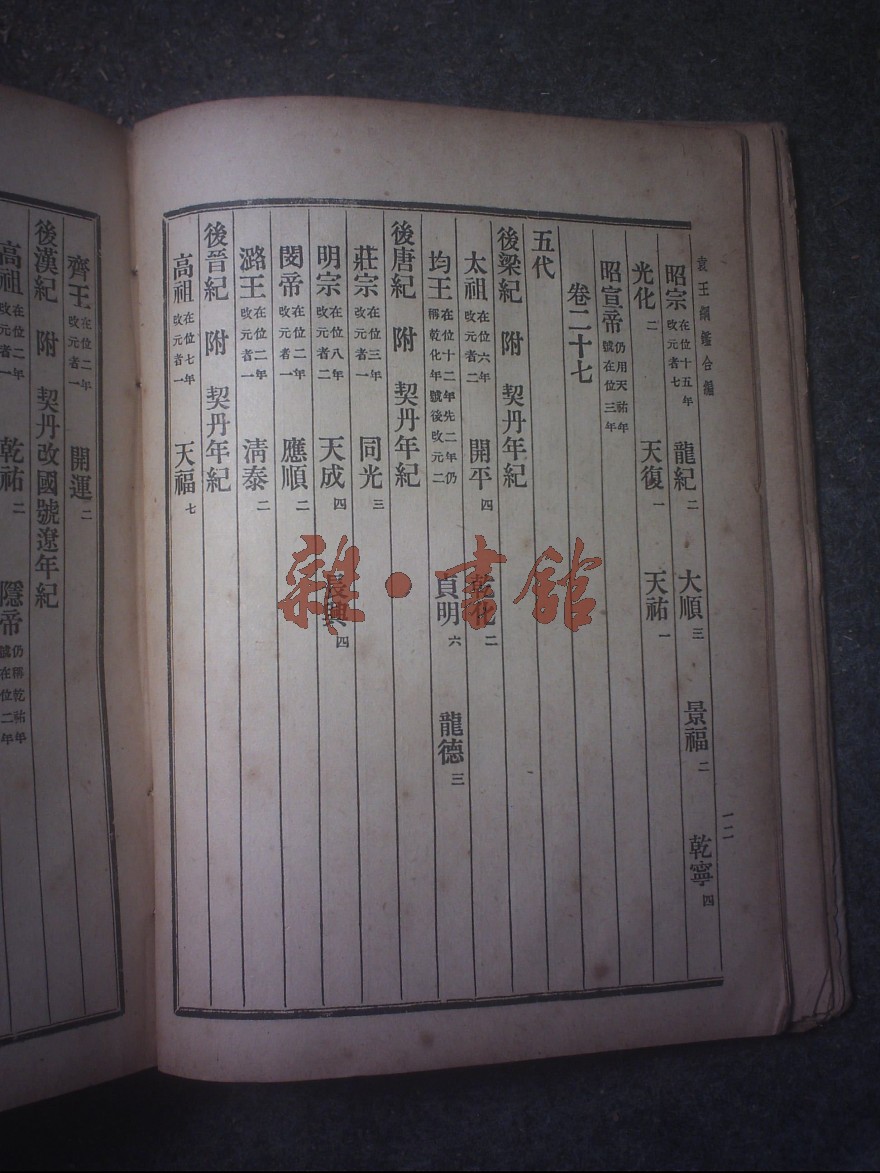 袁王綱鑑合編
昭宗 在位十五年改元者七 龍紀 二 大順 三 景福 二 乾寧 四
光化 二 天復 一 天祐 一
昭宣帝 仍用天祐年號在位三年
卷二十七
五代
後梁紀 附 契丹年紀
太祖 在位六年改元者二 開平 四 乾化 二
均王 在位十二年先二年仍稱乾化年號後改元二 貞明 六 龍德 三
後唐紀 附 契丹年紀
莊宗 在位三年改元者一 同光 三
明宗 在位八年改元者二 天成 四 長興 四
閔帝 在位二年改元者一 應順 二
潞王 在位二年改元者一 清泰 二
後晉紀 附 契丹年紀
高祖 在位七年改元者一 天福 七
一二
齊王 在位二年改元者一 開運 二
後漢紀 附 契丹改國號遼年紀
高祖 在位二年改元者一 乾祐 二 隱帝 仍稱乾祐年號在位二年
雜·書館